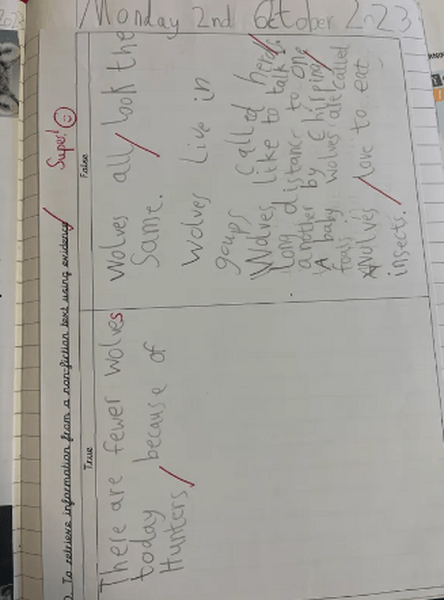 Monday 2nd October 2023
To retrieve information from a non-fiction text using evidence
Super!
True
False
There are fewer wolves
today because of
Hunters
Wolves all look the
Same.
Wolves Live in
goups called herd
Wolves like to talk
long distance to one
another by Chirping
A baby wolves are called
foals
Wolves love to eat
insects.